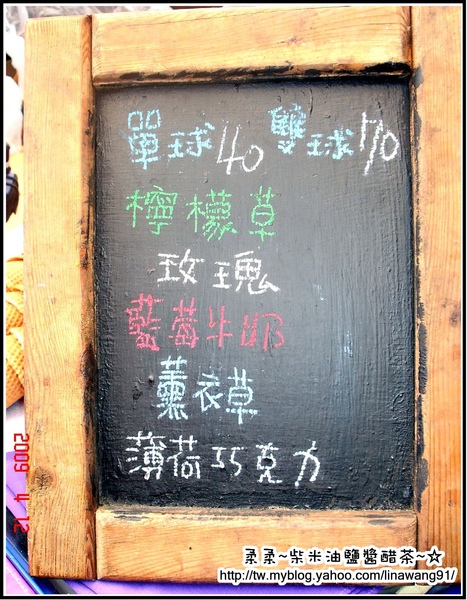 單球40 雙球70
檸檬草
玫瑰
藍莓牛奶
薰衣草
薄荷巧克力
2009 4 12
柔柔~柴米油鹽醬醋茶~☆
http://tw.myblog.yahoo.com/linawang91/